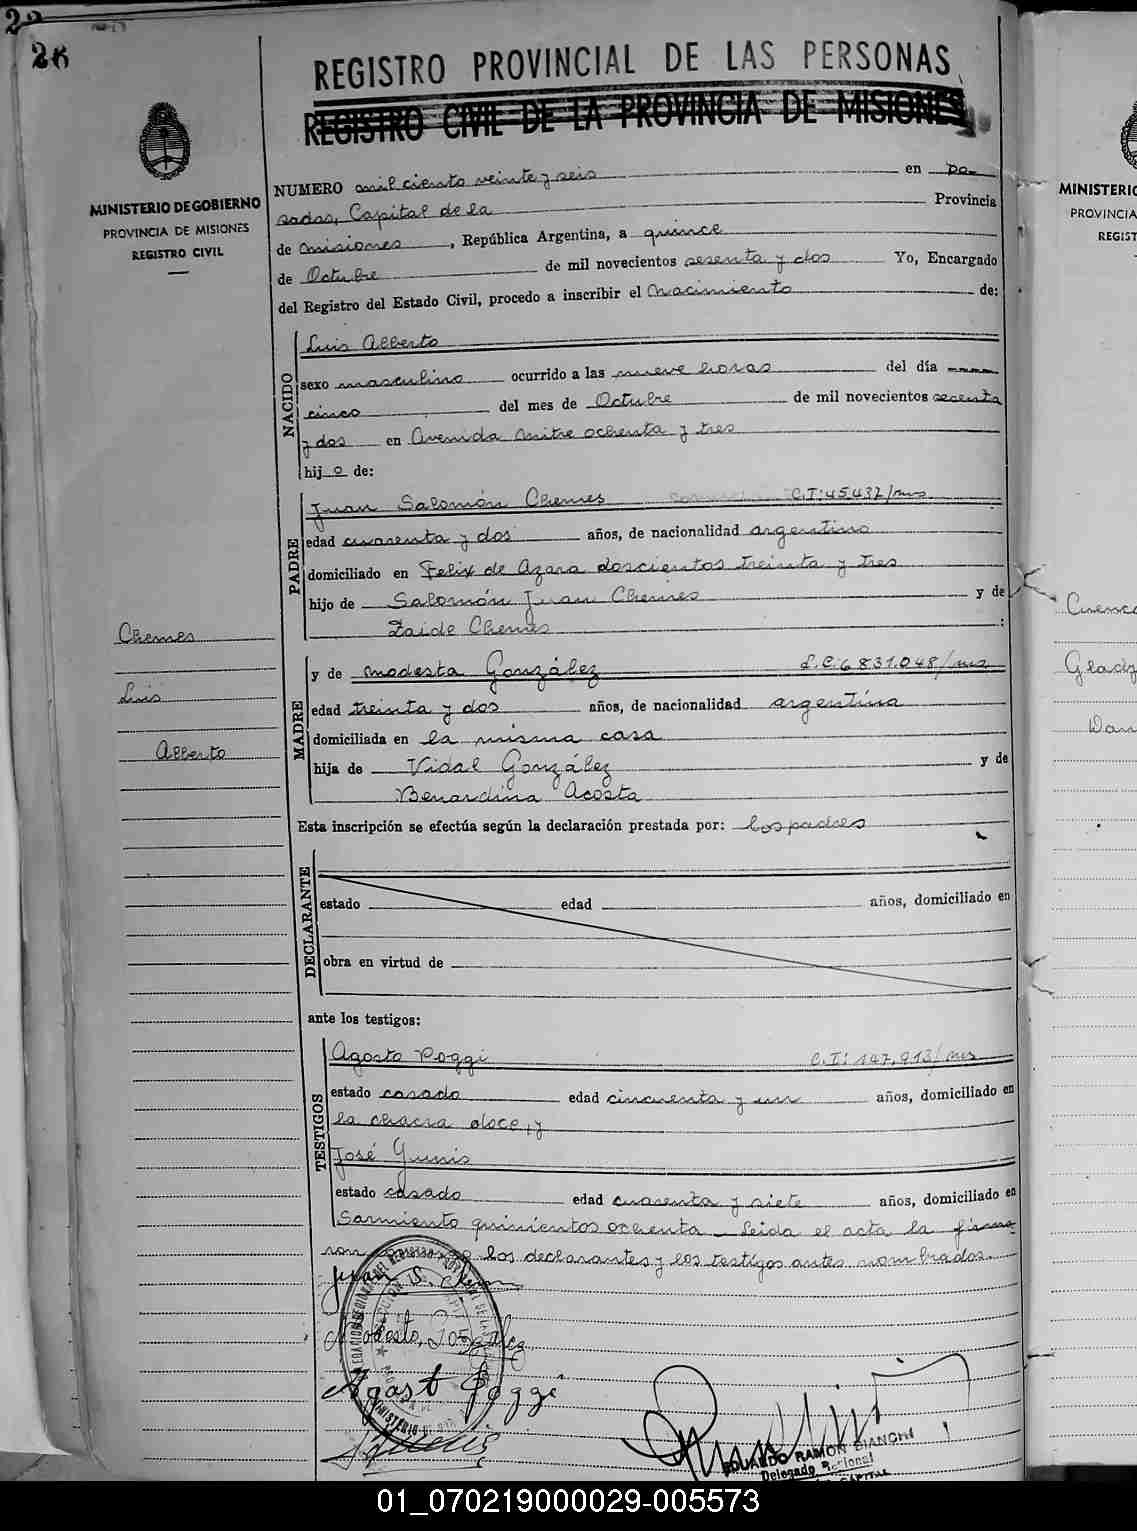 26
REGISTRO PROVINCIAL DE LAS PERSONAS
REGISTRO CIVIL DE LA PROVINCIA DE MISIONES
MINISTERIO DE GOBIERNO
PROVINCIA DE MISIONES
REGISTRO CIVIL
NUMERO mil ciento veinte y seis en Po-
sadas, Capital de la Provincia
de Misiones, República Argentina, a quince
de Octubre de mil novecientos sesenta y dos Yo, Encargado
del Registro del Estado Civil, procedo a inscribir el Nacimiento de:
NACIDO
Luis Alberto
sexo masculino ocurrido a las nueve horas del día
cinco del mes de Octubre de mil novecientos sesenta
y dos en Avenida Mitre ochenta y tres
hijo de:
PADRE
Juan Salomón Chemes C.I: 45.437/mis
edad cuarenta y dos años, de nacionalidad argentino
domiciliado en Felix de Azara doscientos treinta y tres
hijo de Salomón Juan Chemes y de
Zaide Chemes :
Chemes
Luis
Alberto
MADRE
y de Modesta González L.C: 6.831.048/mis
edad treinta y dos años, de nacionalidad argentina
domiciliada en la misma casa
hija de Vidal González y de
Benardina Acosta
Esta inscripción se efectúa según la declaración prestada por: los padres
DECLARANTE
estado edad años, domiciliado en
obra en virtud de
ante los testigos:
TESTIGOS
Agosto Poggi C.I: 147.913/mis
estado casado edad cincuenta y un años, domiciliado en
la chacra doce, y
José Yunis
estado casado edad cuarenta y siete años, domiciliado en
Sarmiento quinientos ochenta - Leida el acta la firma-
ron los declarantes y los testigos antes nombrados.
Juan S.
Modesta González
Agosto Poggi
EDUARDO RAMON BIANCHI
Delegado Regional
CAPITAL
MINISTERIO
PROVINCIA
REGIST
Cuenca
Gladys
01_070219000029-005573